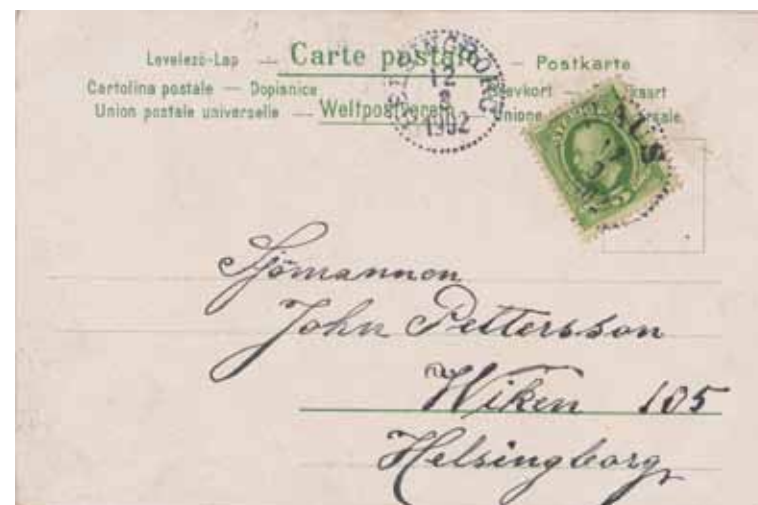 Levelezö-Lap — Carte postale — Postkarte
Cartolina postale — Dopisnice
Union postale universelle — Weltpostverein — Unione
HELSINGBORG
12
2
1902
Sjömannen
John Pettersson
Wiken 105
Helsingborg